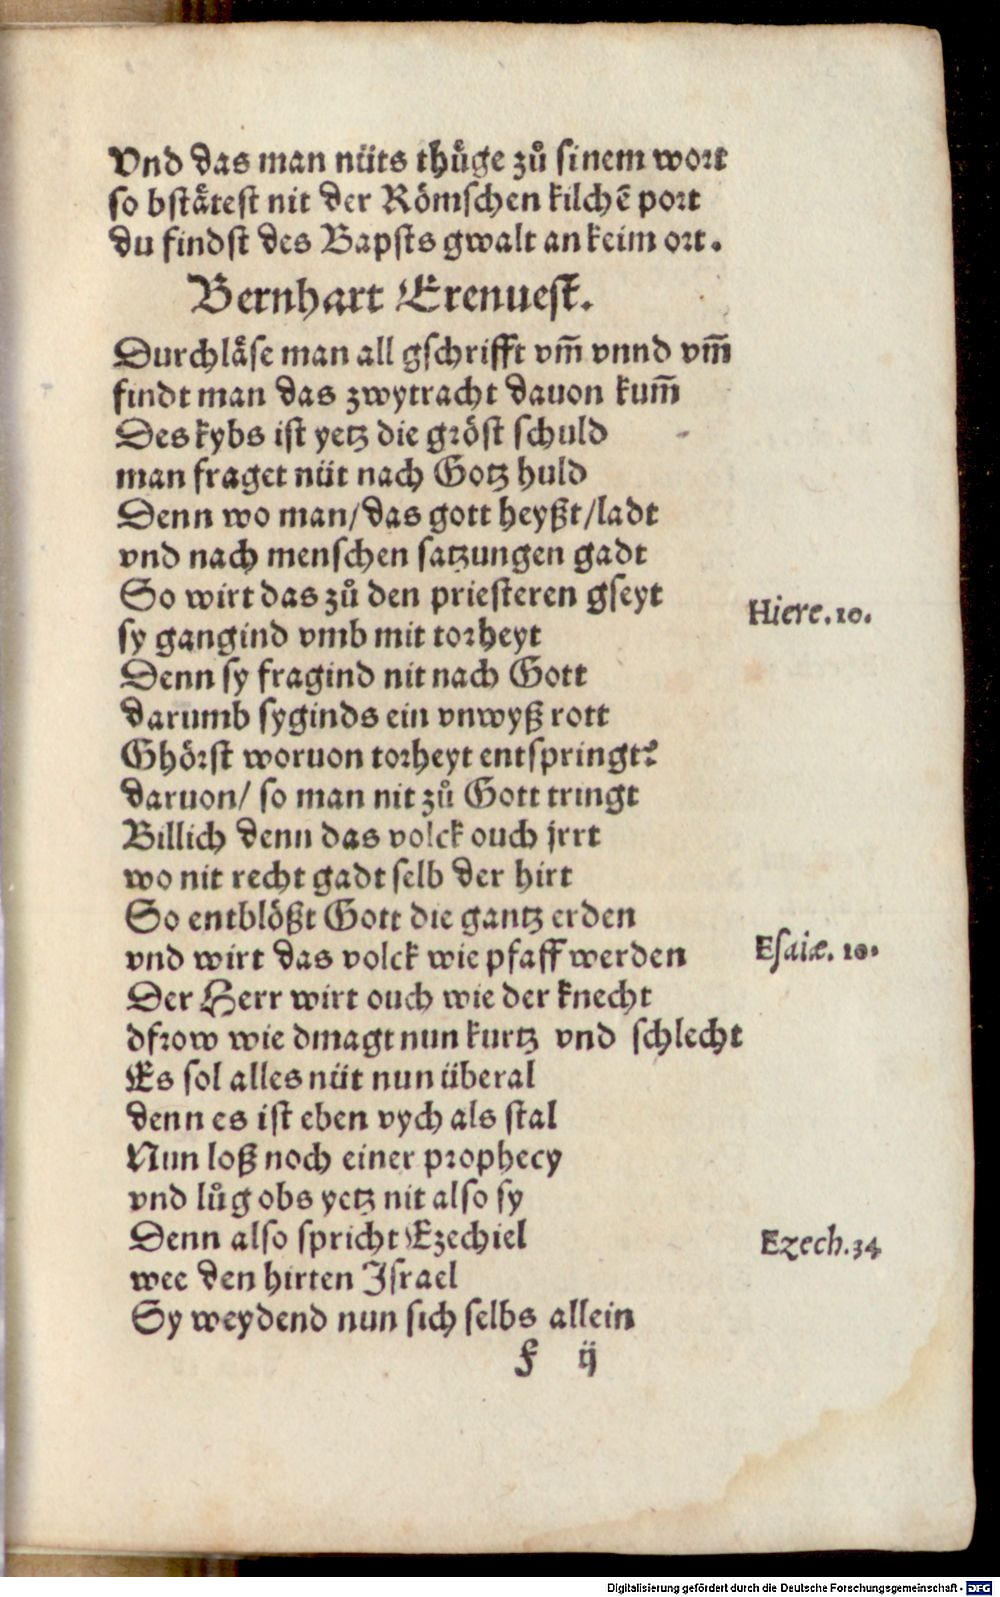 Vnd das man nüts thuͤge zuͦ sinem wort
so bstaͤtest nit der Roͤmschen kilchē port
du findst des Bapsts gwalt an keim ort.
Bernhart Erenuest.
Durchlaͤse man all gschrifft vm̃ vnnd vm̃
findt man das zwytracht dauon kum̃
Des kybs ist yetz die groͤst schuld
man fraget nüt nach Gotz huld
Denn wo man/das gott heyßt/ladt
vnd nach menschen satzungen gadt
So wirt das zuͦ den priesteren gseyt
sy gangind vmb mit torheyt
Hiere.10.
Denn sy fragind nit nach Gott
darumb syginds ein vnwyß rott
Ghoͤrst woruon torheyt entspringt?
daruon/ so man nit zuͦ Gott tringt
Billich denn das volck ouch jrrt
wo nit recht gadt selb der hirt
So entbloͤßt Gott die gantz erden
vnd wirt das volck wie pfaff werden
Esaiæ. 10.
Der Herr wirt ouch wie der knecht
dfrow wie dmagt nun kurtz vnd schlecht
Es sol alles nüt nun überal
denn es ist eben vych als stal
Nun loß noch einer prophecy
vnd luͦg obs yetz nit also sy
Denn also spricht Ezechiel
Ezech.34
wee den hirten Israel
Sy weydend nun sich selbs allein
F ij
Digitalisierung gefördert durch die Deutsche Forschungsgemeinschaft - DFG